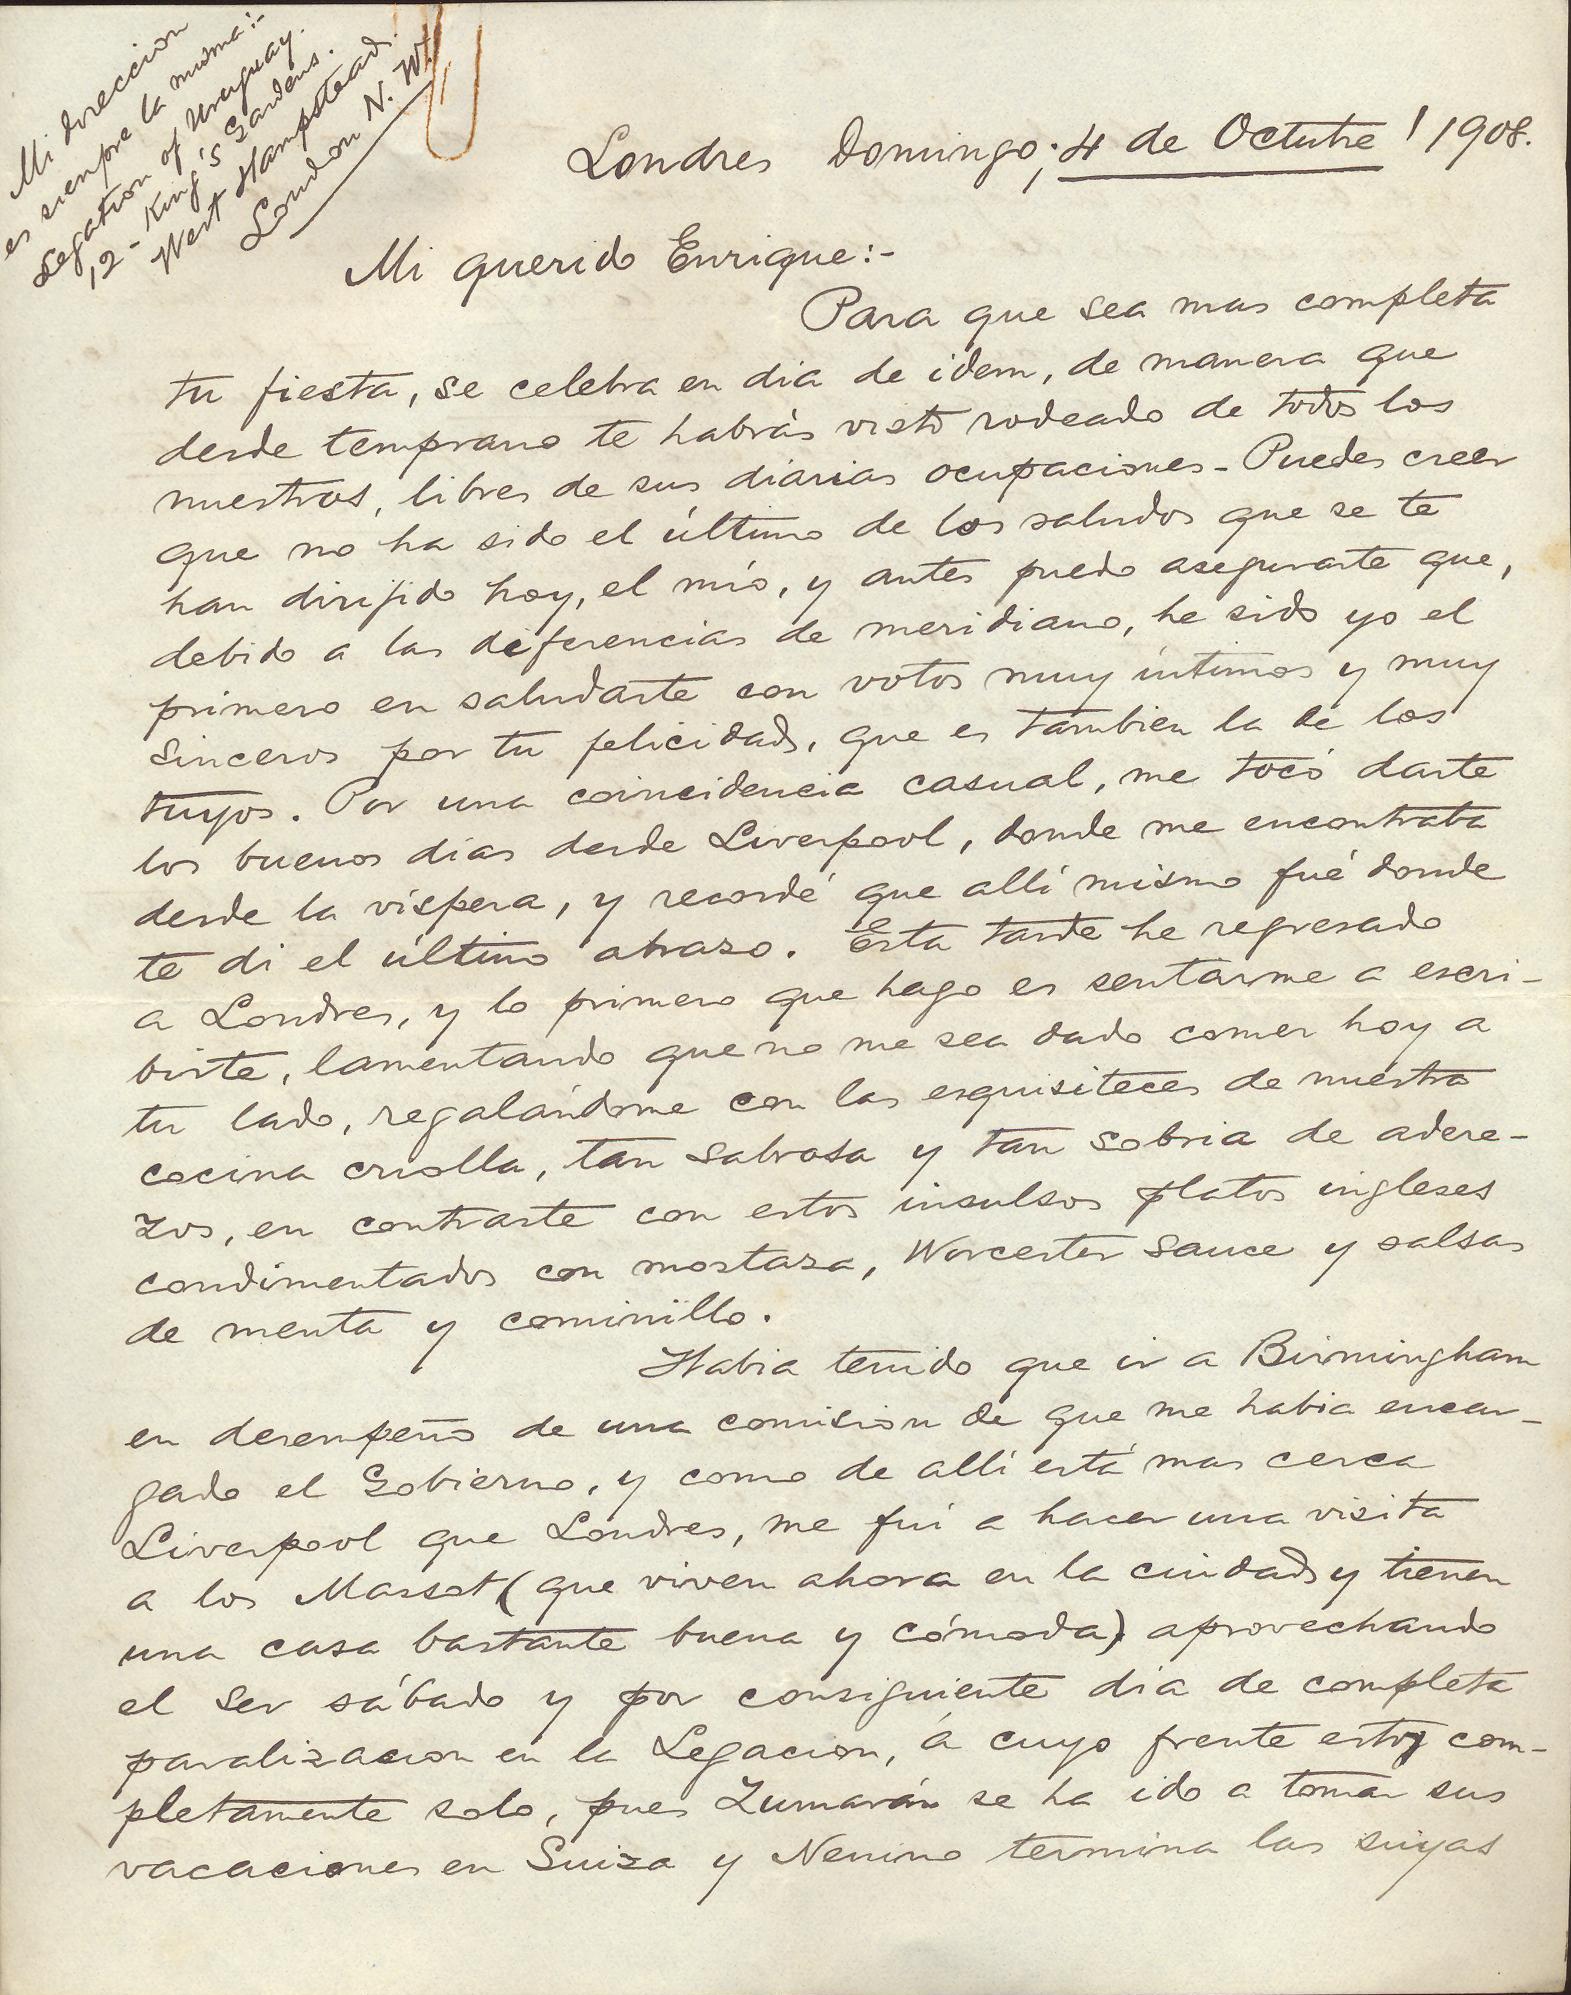 Mi direccion
es siempre la misma:-
Legation of Uruguay.
12 - King's Gardens.
West Hampstead.
London N. W.
Londres Domingo; 4 de Octubre / 1908.
Mi querido Enrique:-
Para que sea mas completa
tu fiesta, se celebra en dia de idem, de manera que
desde temprano te habrás visto rodeado de todos los
nuestros, libres de sus diarias ocupaciones - Puedes creer
que no ha sido el último de los saludos que se te
han dirijido hoy, el mío, y antes puedo asegurarte que,
debido a las diferencias de meridiano, he sido yo el
primero en saludarte con votos muy íntimos y muy
sinceros por tu felicidad, que es tambien la de los
tuyos. Por una coincidencia casual, me tocó darte
los buenos dias desde Liverpool, donde me encontraba
desde la víspera, y recordé que allí mismo fué donde
te di el último abrazo. Esta tarde he regresado
a Londres, y lo primero que hago es sentarme a escri-
birte, lamentando que no me sea dado comer hoy a
tu lado, regalándome con las esquisiteces de nuestra
cocina criolla, tan sabrosa y tan sobria de adere-
zos, en contraste con estos insulsos platos ingleses
condimentados con mostaza, Worcester sauce y salsas
de menta y cominillo.
Habia tenido que ir a Birmingham
en desempeño de una comision de que me habia encar-
gado el Gobierno, y como de allí está mas cerca
Liverpool que Londres, me fuí a hacer una visita
a los Massot (que viven ahora en la ciudad y tienen
una casa bastante buena y cómoda) aprovechando
el ser sábado y por consiguiente dia de completa
paralizacion en la Legacion, á cuyo frente estoy com-
pletamente solo, pues Zumarán se ha ido a tomar sus
vacaciones en Suiza y Nenino termina las suyas